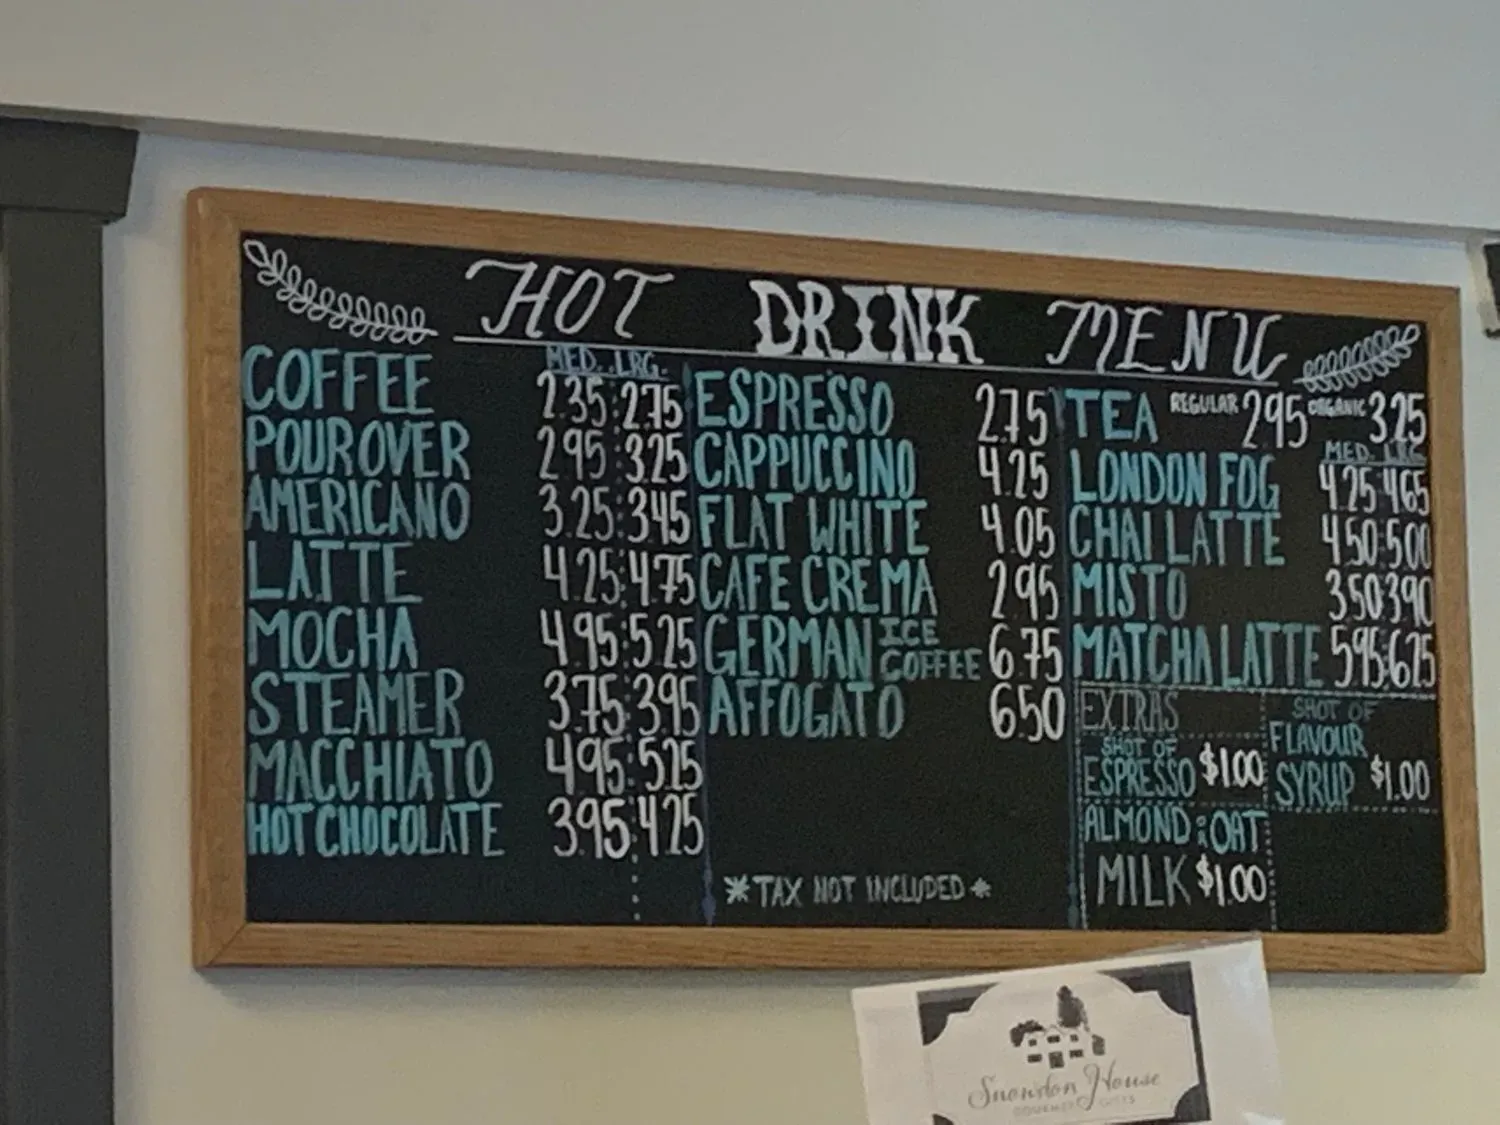 HOT DRINK MENU
MED. LRG.
COFFEE 2.35 2.75
POUROVER 2.95 3.25
AMERICANO 3.25 3.45
LATTE 4.25 4.75
MOCHA 4.95 5.25
STEAMER 3.75 3.95
MACCHIATO 4.95 5.25
HOT CHOCOLATE 3.95 4.25
ESPRESSO 2.75
CAPPUCCINO 4.25
FLAT WHITE 4.05
CAFE CREMA 2.95
GERMAN ICE COFFEE 6.75
AFFOGATO 6.50
*TAX NOT INCLUDED*
TEA REGULAR 2.95 ORGANIC 3.25
MED. LRG.
LONDON FOG 4.25 4.65
CHAI LATTE 4.50 5.00
MISTO 3.50 3.90
MATCHA LATTE 5.95 6.25
EXTRAS
SHOT OF
ESPRESSO $1.00
ALMOND OR OAT
MILK $1.00
SHOT OF
FLAVOUR
SYRUP $1.00
Snowdon House
GOURMET GIFTS